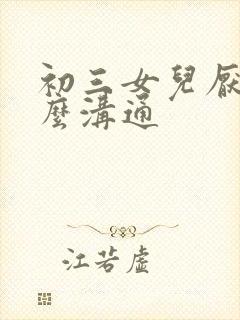 初三女兒厭
麼溝通
江若虛